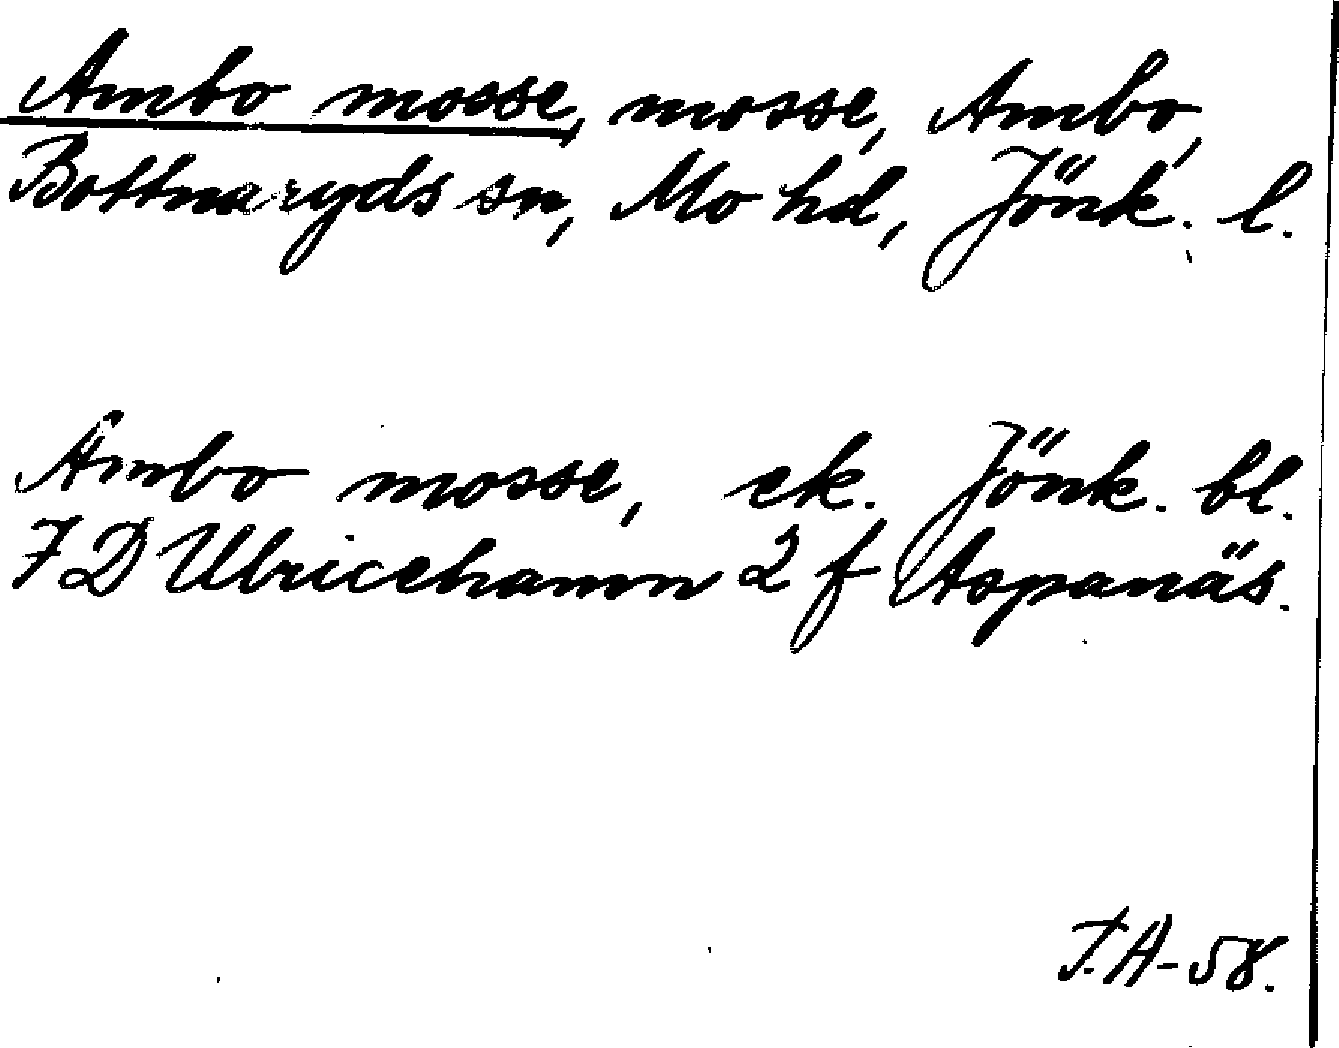 Ambo mosse, mosse, Ambo,
Bottnaryds sn, Mo hd, Jönk. l.
Ambo mosse, ek. Jönk. bl.
7 D Ulricehamn 2 f Aspanäs.
T.A-58.